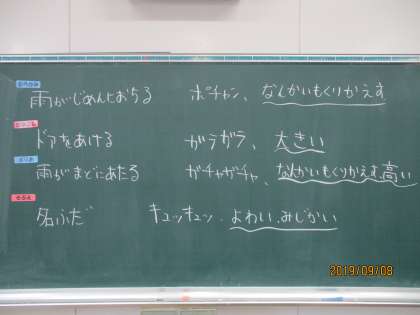 雨がじめんにおちる ポチャン、なんかいもくりかえす
ドアをあける ガラガラ、大きい
雨がまどにあたる ガチャガチャ、なんかいもくりかえす、高い
名ふだ キュッキュッ、よわい、みじかい
2019/09/08